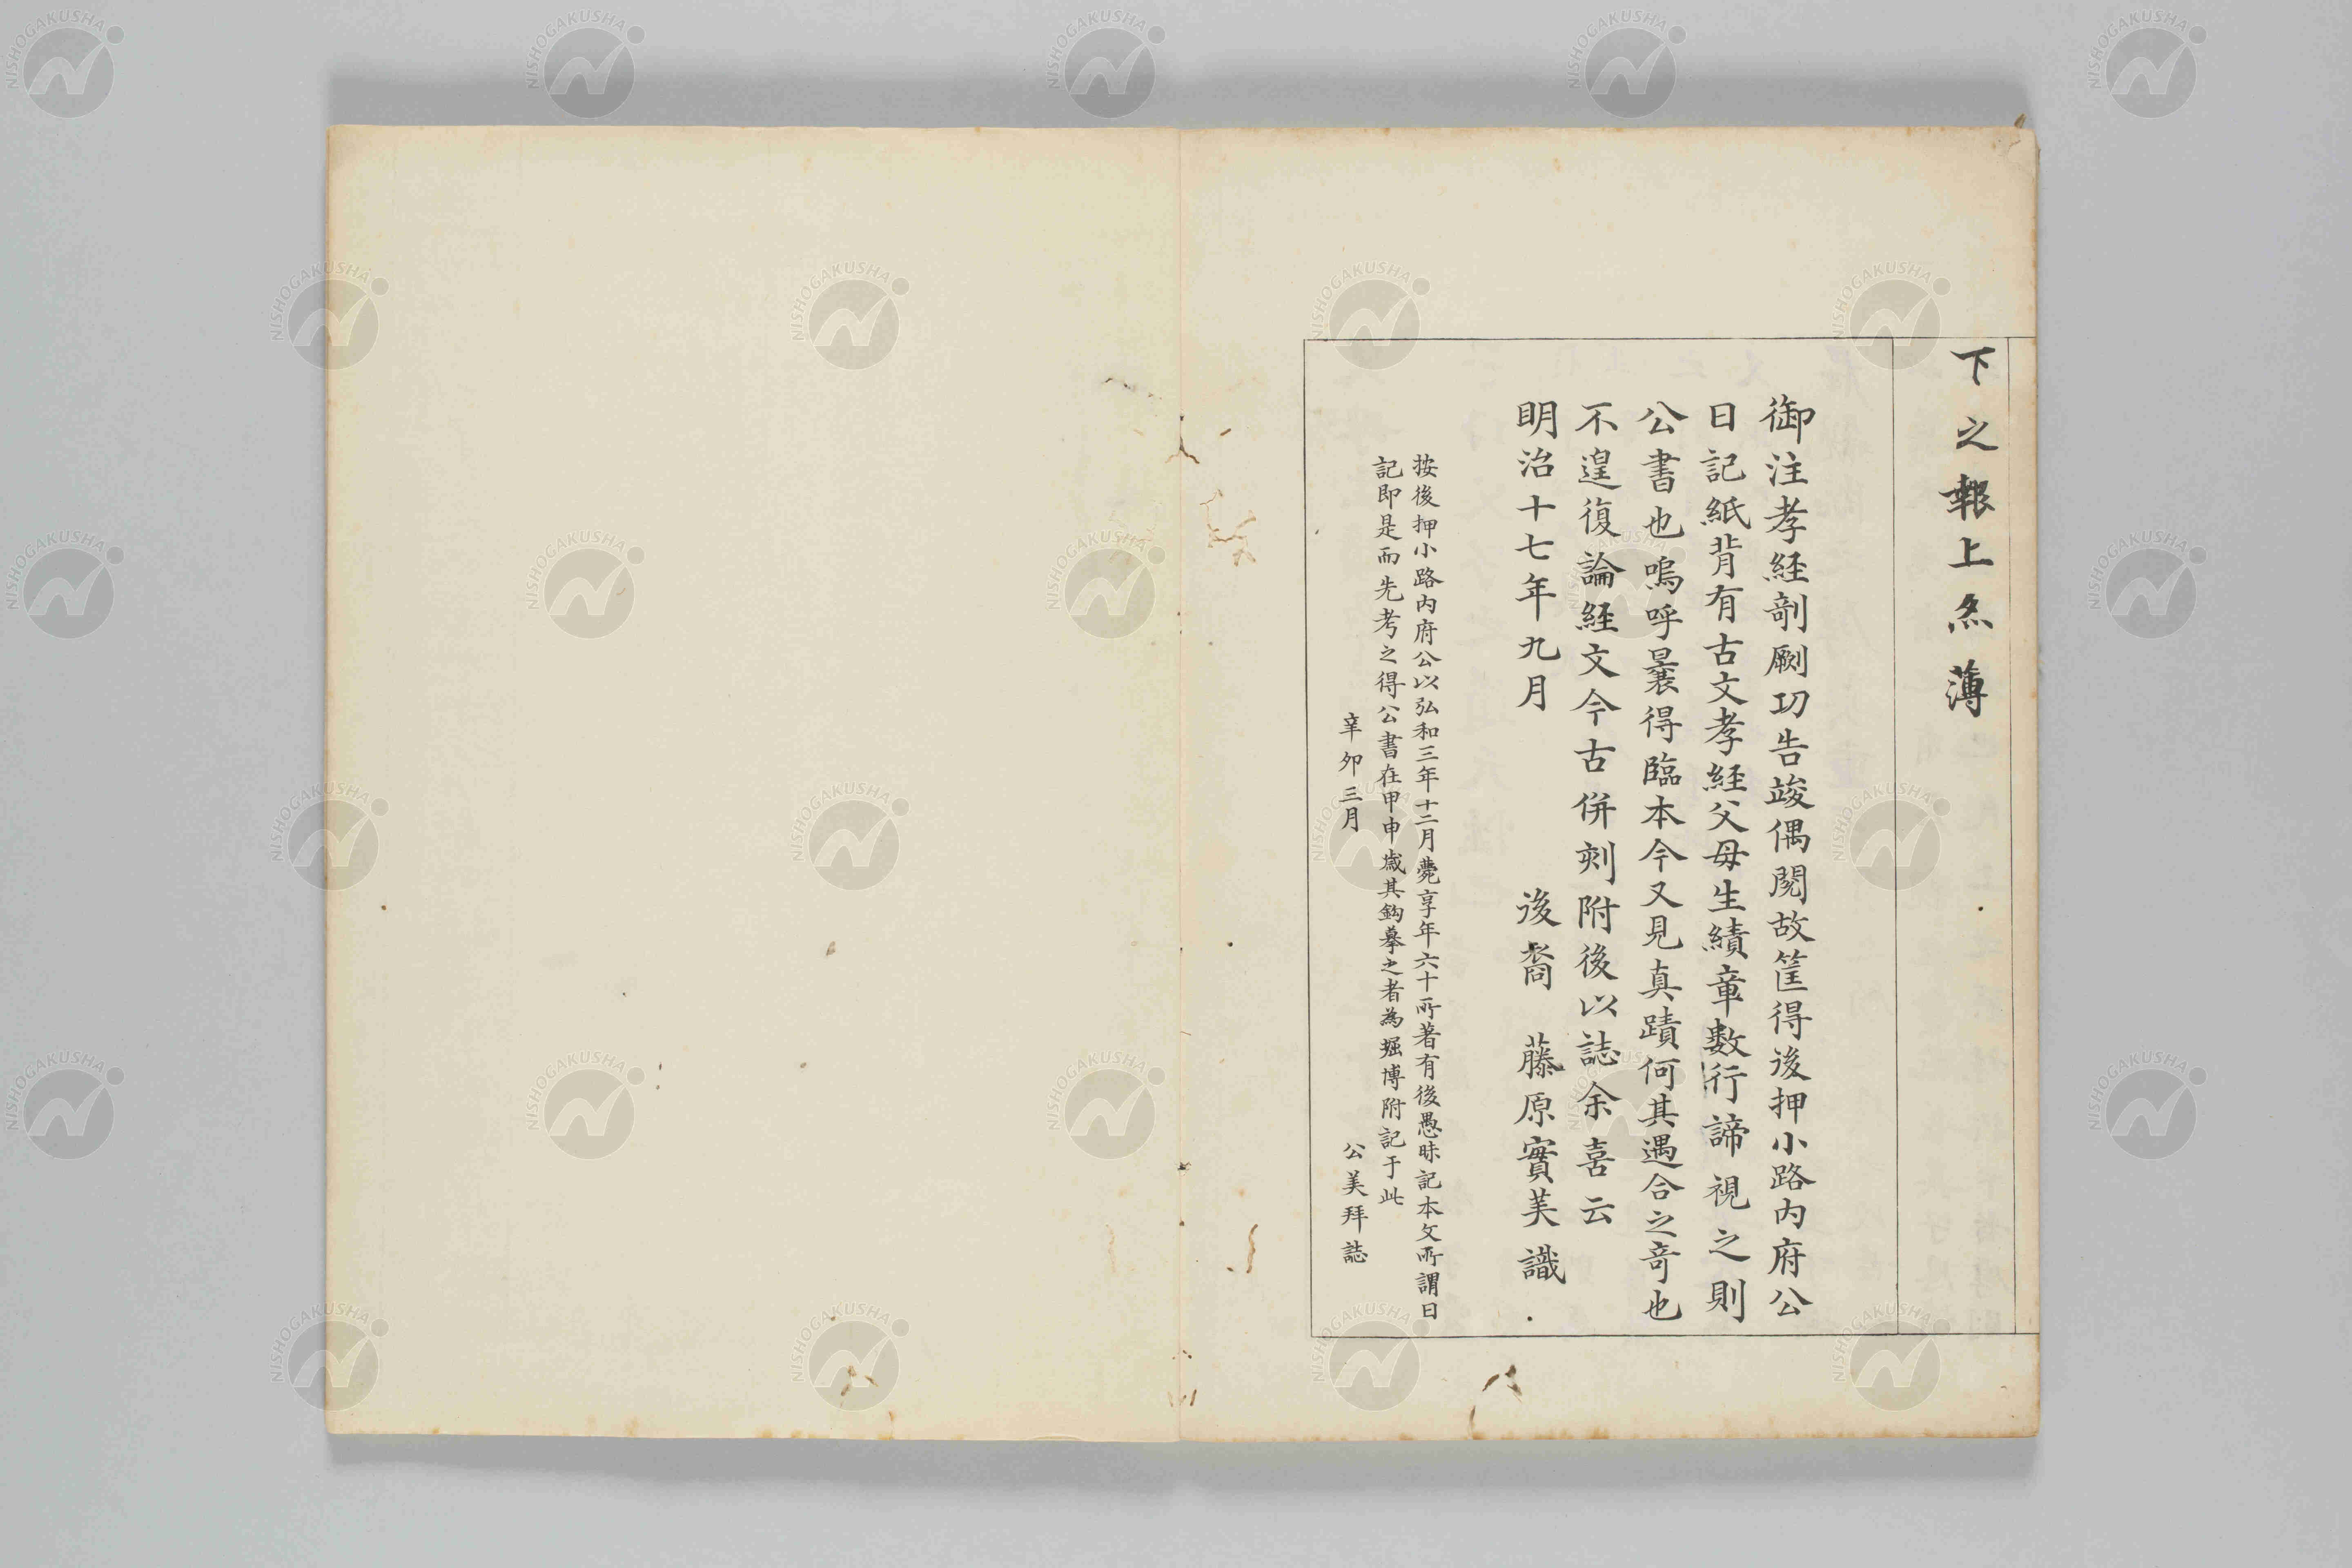 下之報上尽薄
御注孝経剞劂功告竣偶閲故筐得後押小路内府公
日記紙背有古文孝経父母生績章數行諦視之則
公書也嗚呼曩得臨本今又見真蹟何其遇合之竒也
不遑復論経文今古併刻附後以誌余喜云
明治十七年九月 後裔 藤原實美識
按後押小路内府公以弘和三年十二月薨享年六十所著有後愚昧記本文所謂日
記即是而先考之得公書在甲申歳其鈎摹之者為堀博附記于此
辛卯三月 公美拜誌
NISHOGAKUSHA